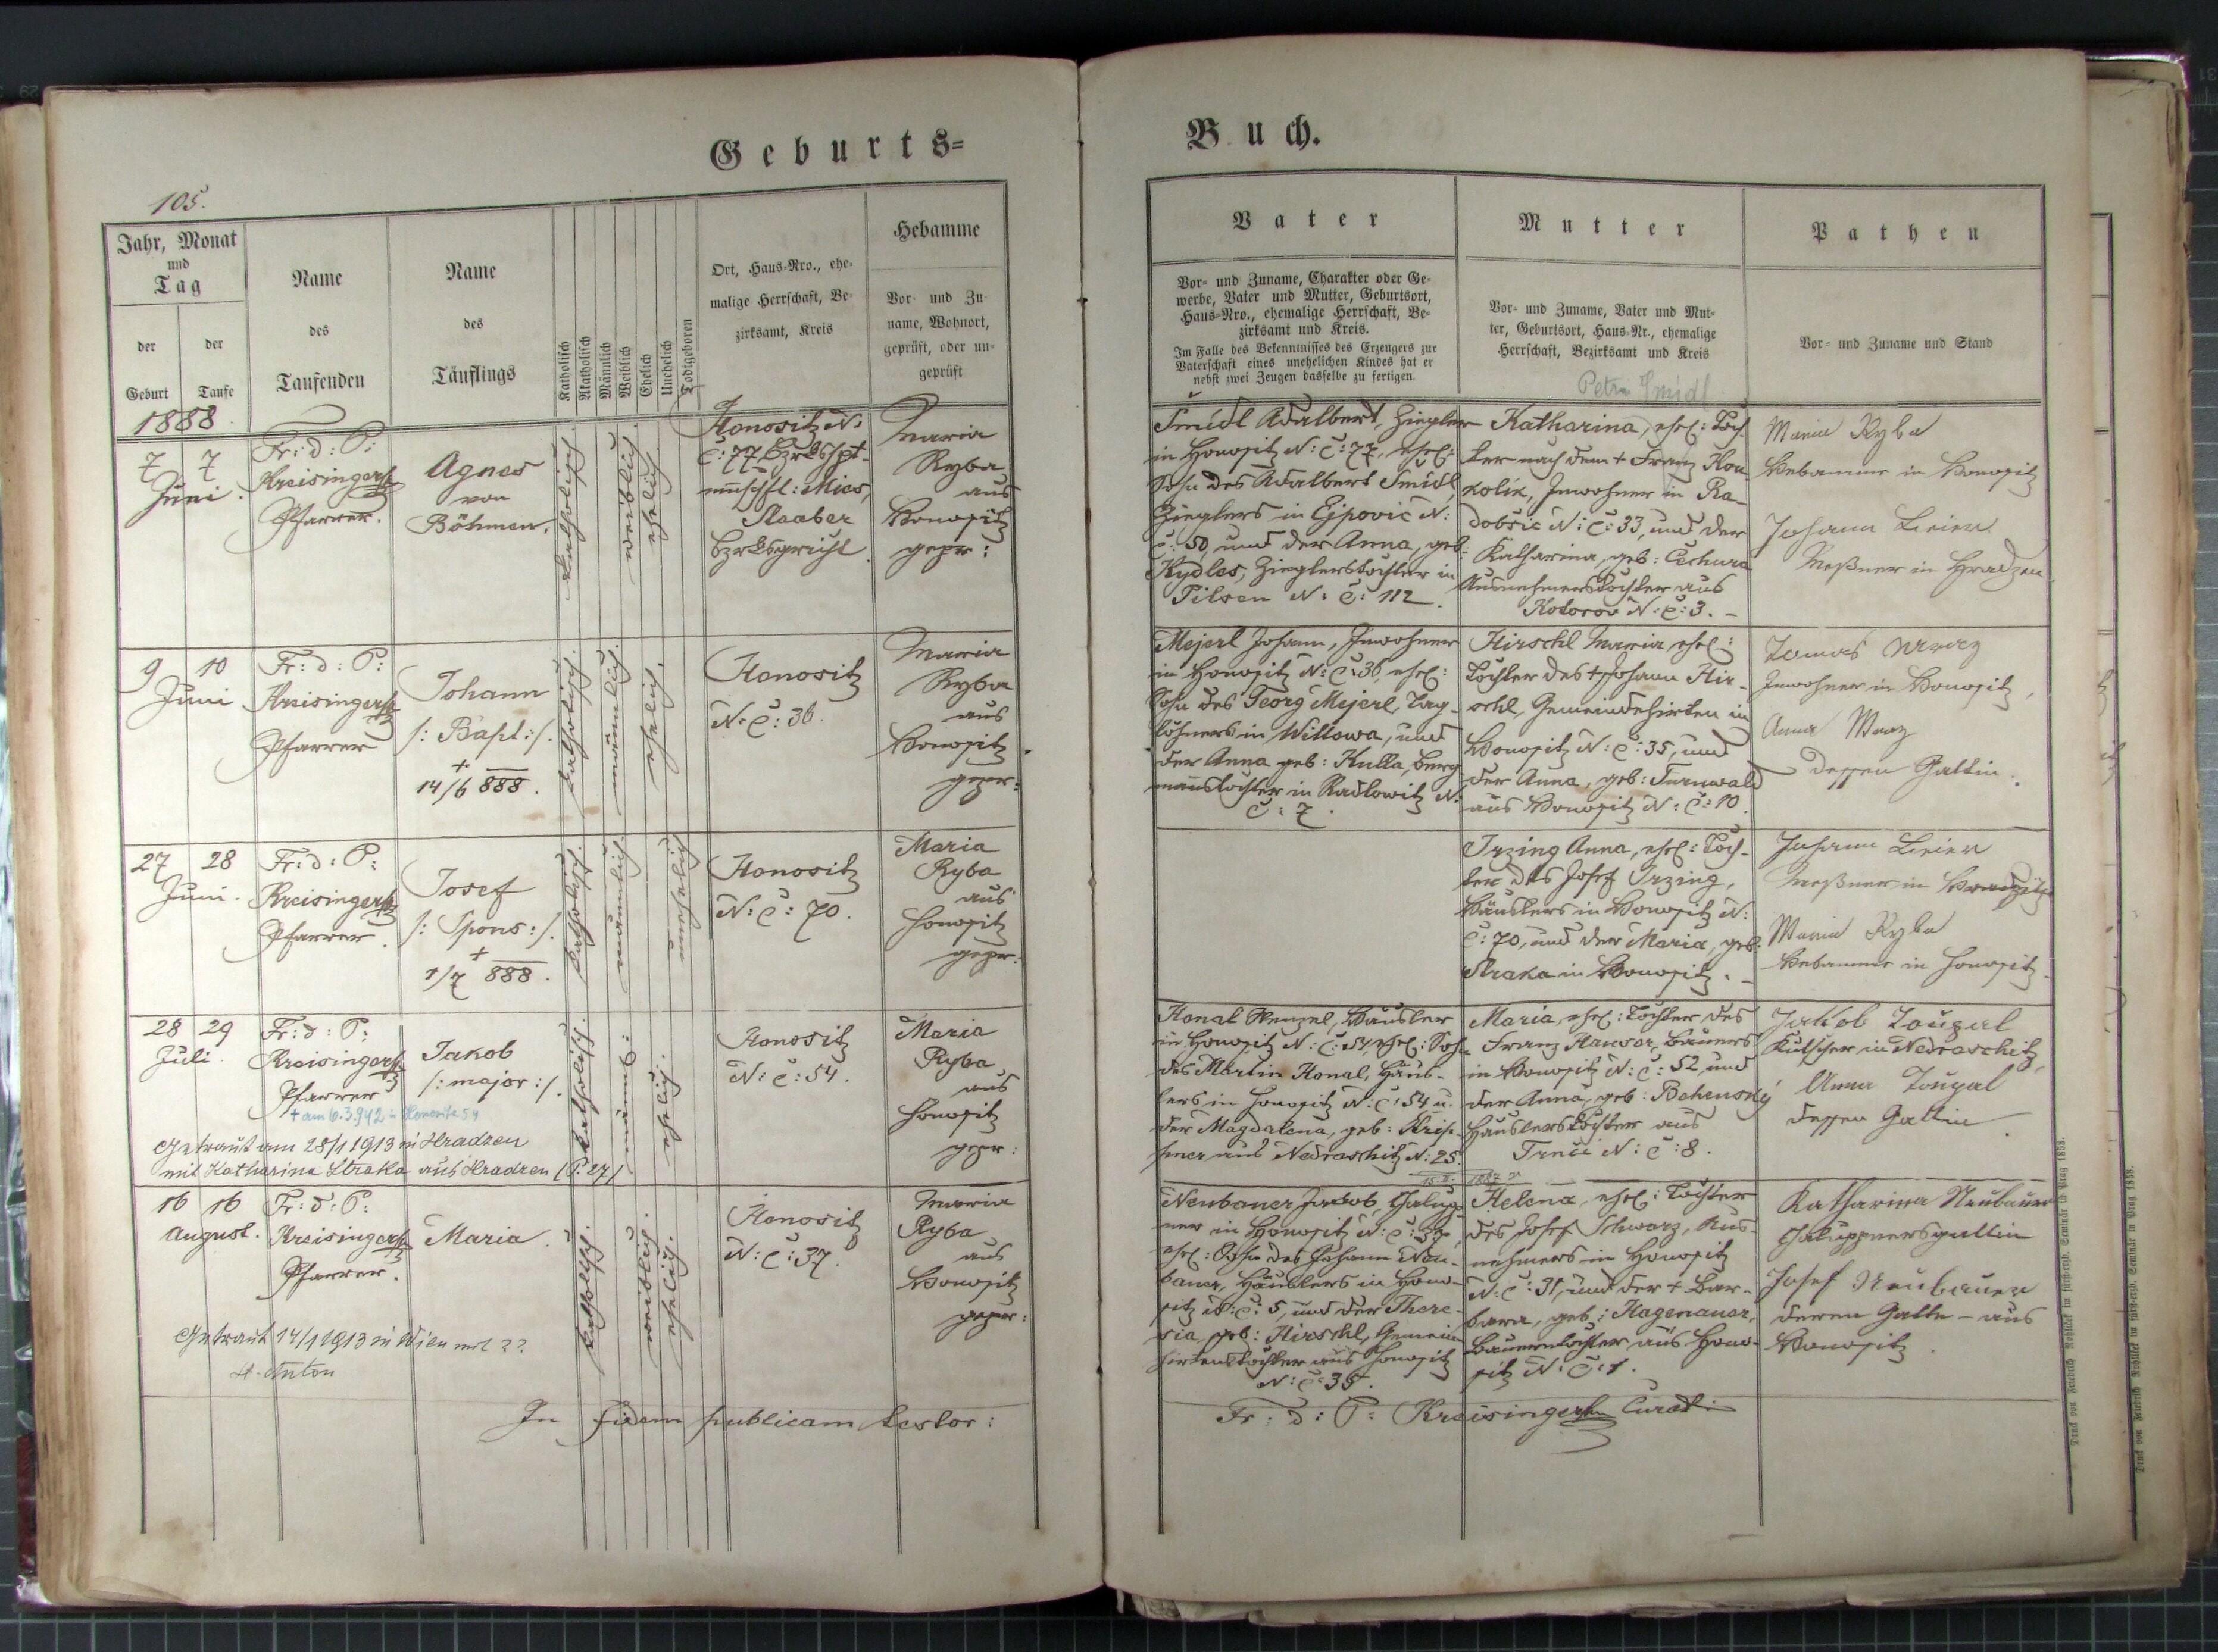 Geburts=
Buch.
105.
Jahr, Monat
und
Tag
der
Geburt
der
Taufe
Name
des
Taufenden
Name
des
Täuflings
Katholisch
Akatholisch
Männlich
Weiblich
Ehelich
Unehelich
Todtgeboren
Ort, Haus-Nro., ehe-
malige Herrschaft, Be-
zirksamt, Kreis
Hebamme
Vor- und Zu-
name, Wohnort,
geprüft, oder un-
geprüft
Vater
Vor- und Zuname, Charakter oder Ge-
werbe, Vater und Mutter, Geburtsort,
Haus-Nro., ehemalige Herrschaft, Be-
zirksamt und Kreis.
Im Falle des Bekenntnisses des Erzeugers zur
Vaterschaft eines unehelichen Kindes hat er
nebst zwei Zeugen dasselbe zu fertigen.
Mutter
Vor- und Zuname, Vater und Mut-
ter, Geburtsort, Haus-Nr., ehemalige
Herrschaft, Bezirksamt und Kreis
Pathen
Vor- und Zuname und Stand
1888.
7 7
Juni.
Fr: d: P:
Kreisinger
Pfarrer.
Agnes
von
Böhmen.
katholisch.
weiblich.
ehelich.
Honositz N:
C: 77, Bzrkshpt-
mnschft: Mies,
Staaber
Bzrksgricht.
Maria
Ryba
aus
Honositz
gepr:
Šmidl Adalbert, Ziegler
in Honositz N: C: 77, ehel:
Sohn des Adalbert Šmidl,
Zieglers in Ejpovic N:
C: 50, und der Anna, geb:
Kydles, Zieglerstochter in
Pilsen N: C: 112.
Katharina, ehel: Toch-
ter nach dem + Franz Kou-
kolík, Inwohner in Ra-
dobšic N: C: 33, und der
Katharina, geb: Čechura
Ausnehmerstochter aus
Kotorov N: C: 3. –
Maria Ryba
Hebamme in Honositz
Johann Beier
Meßner in Hradzen
9 10
Juni
Fr: d: P:
Kreisinger
Pfarrer
Johann
/: Bapt: /.
+
14/6 888.
katholisch.
männlich.
ehelich.
Honositz
N: C: 36.
Maria
Ryba
aus
Honositz
gepr:
Mejerl Johann, Inwohner
in Honositz N: C: 36, ehel:
Sohn des Georg Mejerl, Tag-
löhners in Wilkowa, und
der Anna geb: Kulka, Berg-
mannstochter in Radlowitz N:
C: 7.
Hirschl Maria, ehel:
Tochter des + Johann Hir-
schl, Gemeindehirten in
Honositz N: C: 35, und
der Anna, geb: Turnwald
aus Honositz N: C: 10.
Inwohner in Honositz,
dessen Gattin.
27 28
Juni.
Fr: d: P:
Kreisinger
Pfarrer.
Josef
/: Spons: /.
+
1/7 888.
katholisch.
männlich.
unehelich
Honositz
N: C: 70.
Maria
Ryba
aus
Honositz
gepr:
Irzing Anna, ehel: Toch-
ter des Josef Irzing,
Häuslers in Honositz N:
C: 70, und der Maria, geb:
Straka in Honositz. –
Johann Beier
Meßner in
Maria Ryba
Hebamme in Honositz.
28 29
Juli.
Fr: d: P:
Kreisinger
Pfarrer
Jakob
/: major: /.
+ am 6.3.942 in Honositz 54
Getraut am 28/1 1913 in Hradzen
mit Katharina Straka aus Hradzen (P. 27)
katholisch.
männl:
ehelich.
Honositz
N: C: 54.
Maria
Ryba
aus
Honositz
gepr:
Honal Wenzel, Häusler
in Honositz N: C: 54, ehel: Sohn
des Martin Honal, Häus-
lers in Honositz N: C: 54 u.
der Magdalena, geb: Krip-
ner aus Nedraschitz N: 25.
Maria, ehel: Tochter des
Franz Hauser, Bauers
in Honositz N: C: 52, und
der Anna, geb: Bohenský
Häuslerstochter aus
Trnčí N: C: 8.
Jakob Toupal
Kutscher in Nedraschitz,
Anna Toupal
dessen Gattin.
16 16
August.
Fr: d: P:
Kreisinger
Pfarrer.
Maria.
Getraut 14/1 1913 in Wien mit ??
Anton
katholisch.
weiblich.
ehelich.
Honositz
N: C: 37.
Maria
Ryba
aus
Honositz
gepr:
Neubauer Jakob, Chalup-
ner in Honositz N: C: 37,
ehel: Sohn des Johann Neu-
bauer, Häuslers in Hono-
sitz N: C: 5, und der There-
sia, geb: Hirschl, Gemein-
hirtenstochter aus Honositz
N: C: 35.
Helena, ehel: Tochter
des Josef Schwarz, Aus-
nehmers in Honositz
N: C: 31, und der + Bar-
bara, geb: Hagenauer,
Bauerntochter aus Hono-
sitz N: C: 1.
Katharina Neubauer
Chaluppnersgattin
Josef Neubauer
deren Gatte – aus
Honositz.
In fidem publicam testor:
Fr: d: P: Kreisinger Curat: